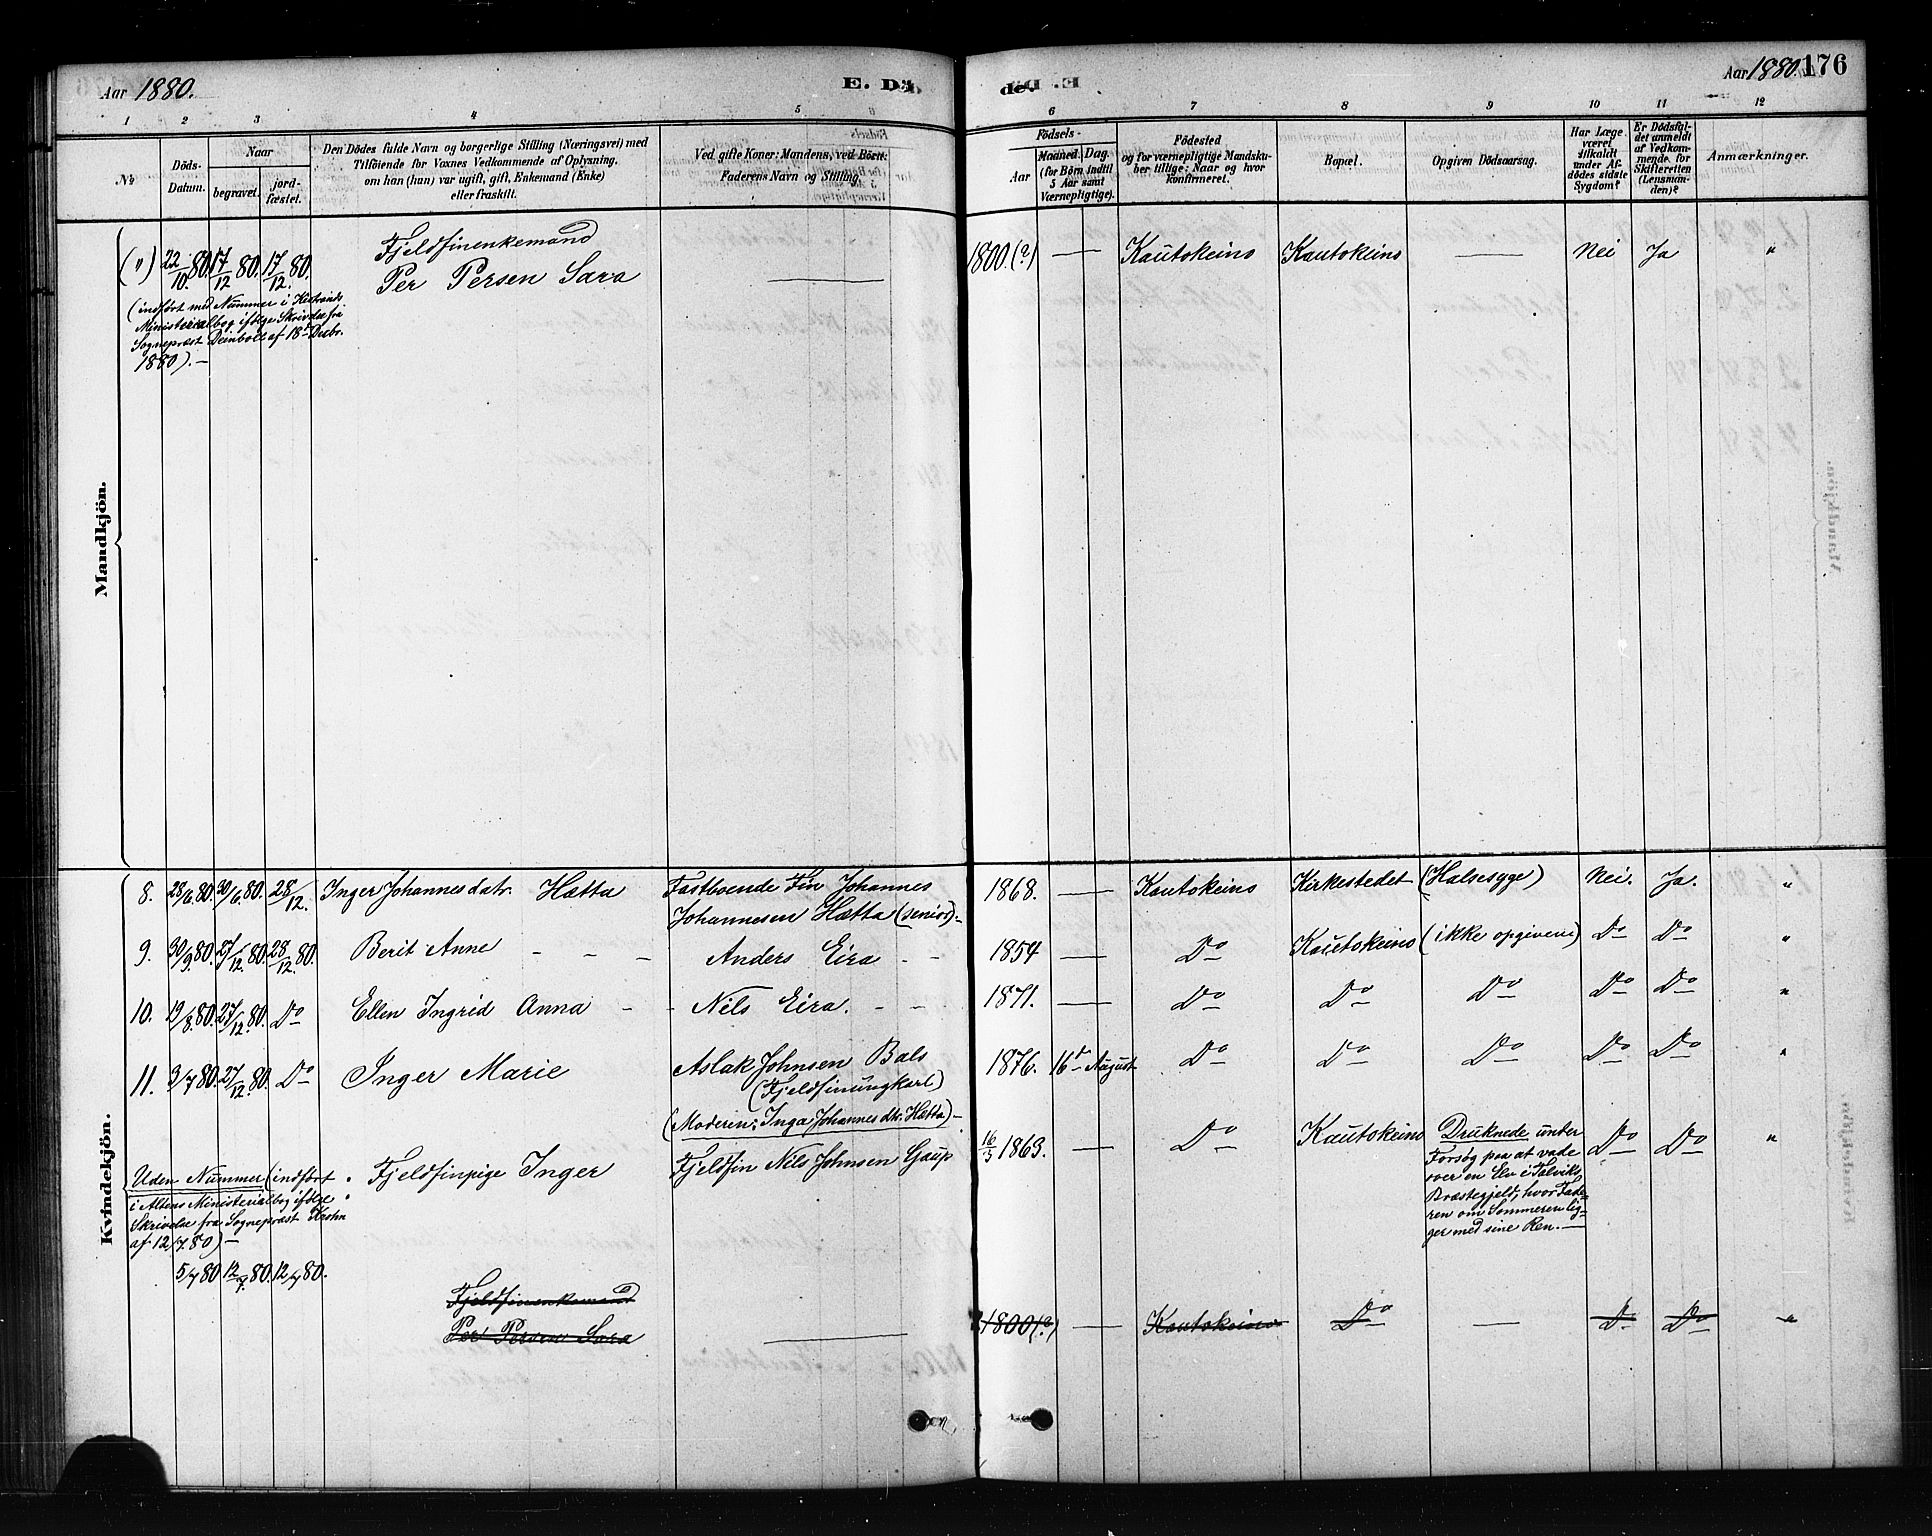 Aar 1880.
E. Dö
de.
Aar 1880. 176
1 2 3 4 5 6 7 8 9 10 11 12
№
Döds-
Datum.
Naar
begravet.
jord-
fæstet.
Den Dödes fulde Navn og borgerlige Stilling (Næringsvei) med
Tilföiende for Voxnes Vedkommende af Oplysning,
om han (hun) var ugift, gift, Enkemand (Enke)
eller fraskilt.
Ved gifte Koner: Mandens, ved Börn:
Faderens Navn og Stilling.
Födsels-
Aar
Maaned. Dag.
(for Börn indtil
5 Aar samt
Værnepligtige).
Födested
og for værnepligtige Mandsku-
ber tillige: Naar og hvor
konfirmeret.
Bopæl.
Opgiven Dödsaarsag.
Har Læge
været
tilkaldt
under Af-
dödes sidste
Sygdom?
Er Dödsfal-
det anmeldt
af Vedkom-
mende for
Skifteretten
(Lensman-
den)?
Anmærkninger.
Mandkjön.
(") 22/10 80. 17/12 80. 17/12 80.
Fjeldfinenkemand
Per Persen Sara
1800.(?) — Kautokeino Kautokeino — Nei Ja "
(indført med Nummer i Kistrands
Ministerialbog ifølge Skrivelse fra
Sognepræst Deinboll af 18de Decbr.
1880). —
Kvindekjön.
8. 28/6 80. 30/6 80. 28/12. Inger Johannesdatr. Hætta Fastboende Fin Johannes
Johannesen Hætta (senior).-
1868. — Kautokeino Kirkestedet (Halsesyge) Nei. Ja. "
9. 30/9 80. 27/12 80. 28/12 80. Berit Anne - - - Anders Eira - -
1854 — Do Kautokeino (ikke opgiven) Do Do "
10. 19/8 80. 27/12 80. Do Ellen Ingrid Anna - - Nils Eira. - -
1871. — Do Do Do Do Do "
11. 3/7 80. 27/12 80. Do Inger Marie Aslak Johnsen Bals
(Fjeldfinungkarl)
(Moderen: Inga Johannesdtr. Hætta) -
1876. 16de August Do Do Do Do Do "
Uden Nummer (indført
i Altens Ministerialbog ifølge
Skrivelse fra Sognepræst Krohn
af 12/7.80) —
5/7 80 12/7 80. 12/7 80.
Fjeldfinpige Inger Fjeldfin Nils Johnsen Gaup
16/5 1863. — Do Kautokeino Druknede under
Forsøg paa at vade
over en Elv i Talviks
Præstegjeld, hvor Fade-
ren om Sommeren lig-
ger med sine Ren. —
Do Do "
Fjeldfinenkemand
Per Persen Sara
1800(?) — Kautokeino Do — Do Do "